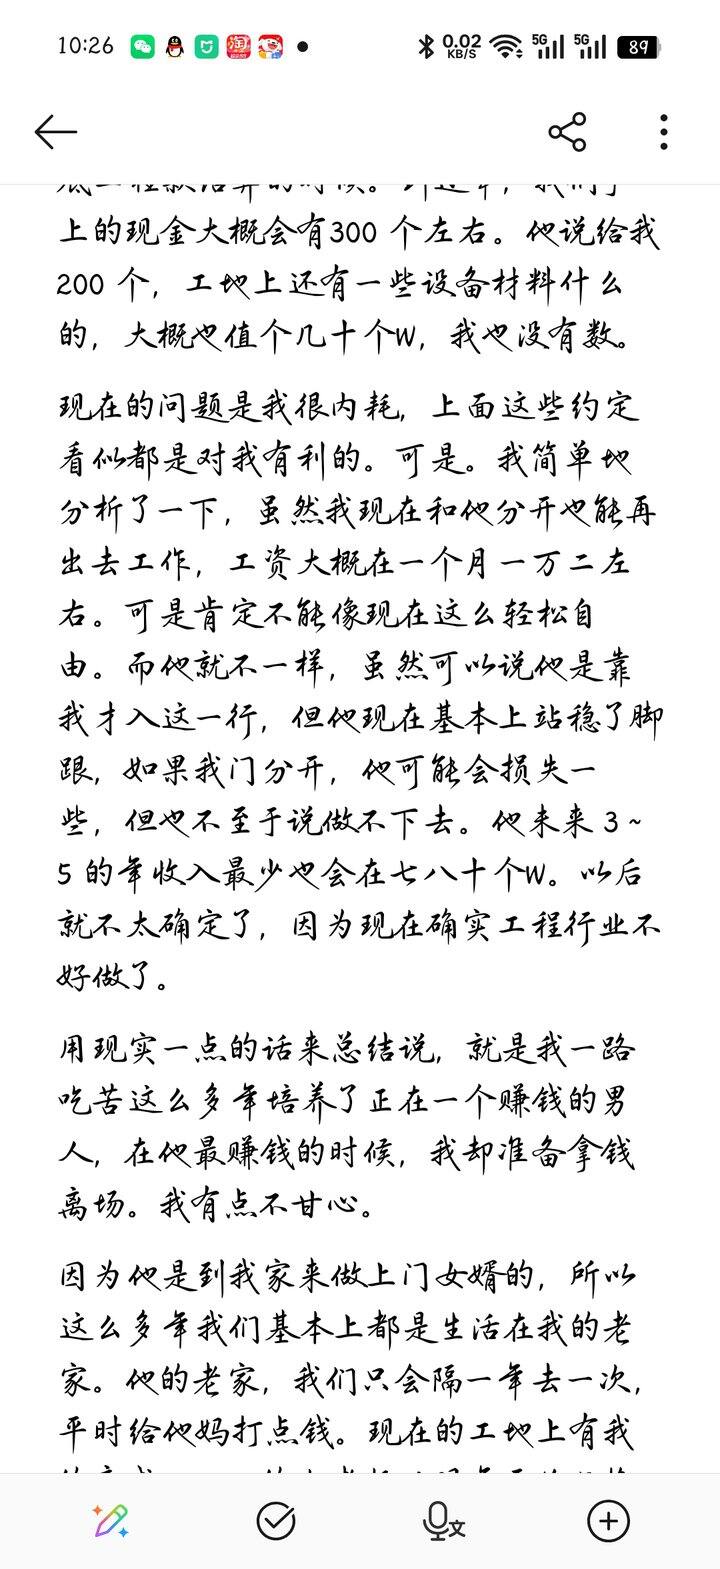 10:26
0.02
KB/S
5G
5G
89
上的现金大概会有300 个左右。他说给我
200 个，工地上还有一些设备材料什么
的，大概也值个几十个W，我也没有数。
现在的问题是我很内耗，上面这些约定
看似都是对我有利的。可是。我简单地
分析了一下，虽然我现在和他分开也能再
出去工作，工资大概在一个月一万二左
右。可是肯定不能像现在这么轻松自
由。而他就不一样，虽然可以说他是靠
我才入这一行，但他现在基本上站稳了脚
跟，如果我门分开，他可能会损失一
些，但也不至于说做不下去。他未来 3~
5 的年收入最少也会在七八十个W。以后
就不太确定了，因为现在确实工程行业不
好做了。
用现实一点的话来总结说，就是我一路
吃苦这么多年培养了正在一个赚钱的男
人，在他最赚钱的时候，我却准备拿钱
离场。我有点不甘心。
因为他是到我家来做上门女婿的，所以
这么多年我们基本上都是生活在我的老
家。他的老家，我们只会隔一年去一次，
平时给他妈打点钱。现在的工地上有我
文